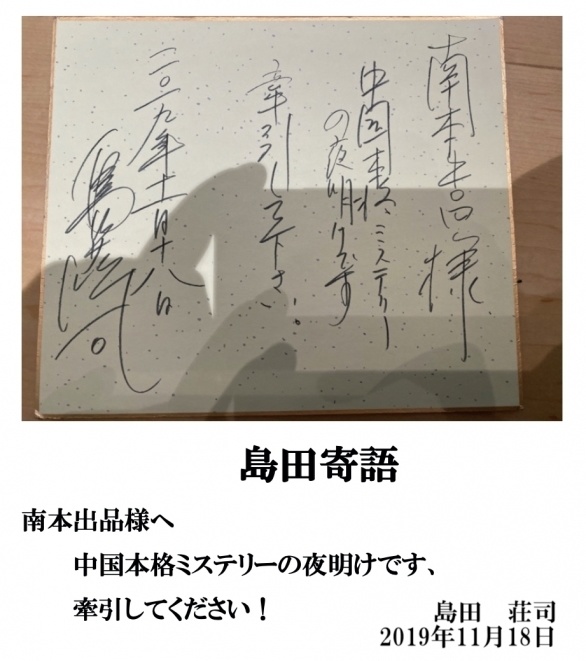 南本出品様
中国本格ミステリー
の夜明けです
牽引して下さい!
二〇一九年十一月十八日
島田荘司
島田寄語
南本出品様へ
中国本格ミステリーの夜明けです、
牽引してください！
島田　荘司
2019年11月18日